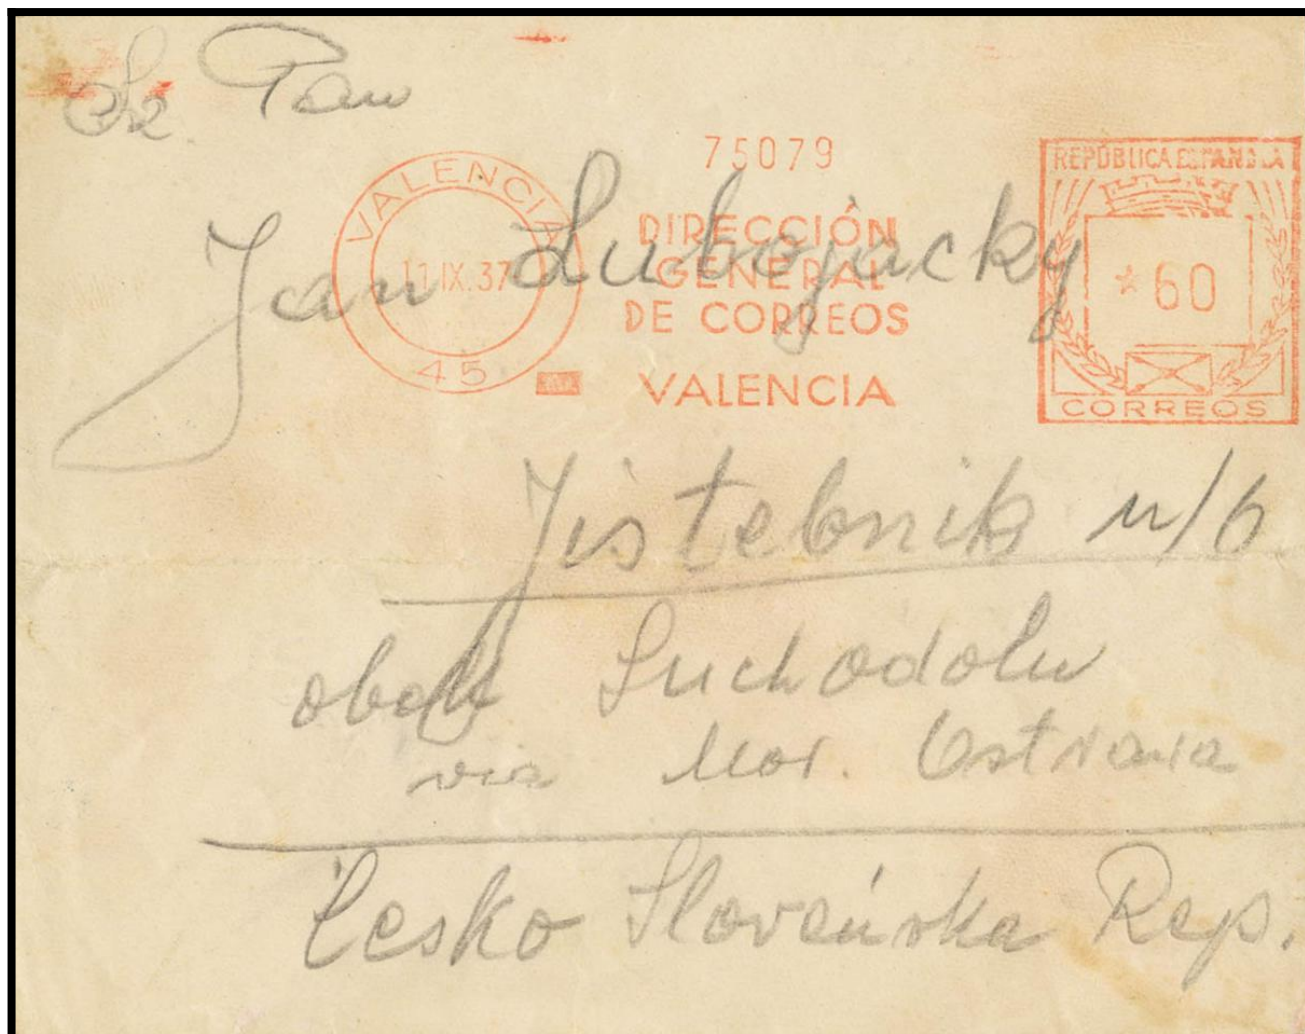 Sz. Pan
75079
VALENCIA
11 IX. 37
45
DIRECCIÓN
GENERAL
DE CORREOS
VALENCIA
REPÚBLICA ESPAÑOLA
* 60
CORREOS
Jan Lubojacky
Jistebnik n/O
Suchodolu
via Mor. Ostrawa
Česko Sloveńska Rep.